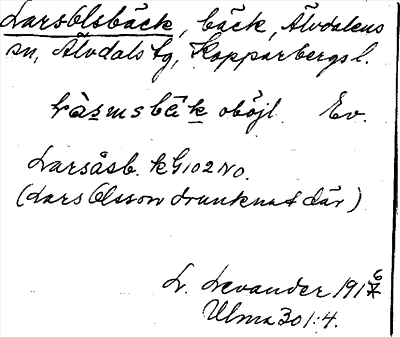 Larsolsbäck, bäck, Älvdalens
sn, Älvdals tg, Kopparbergs l.
làsmsbäk oböjl. Ev.
Larsåsb. kG102 NO.
(Lars Olsson drunknat där)
L. Levander 1916
Ulma 301:4.